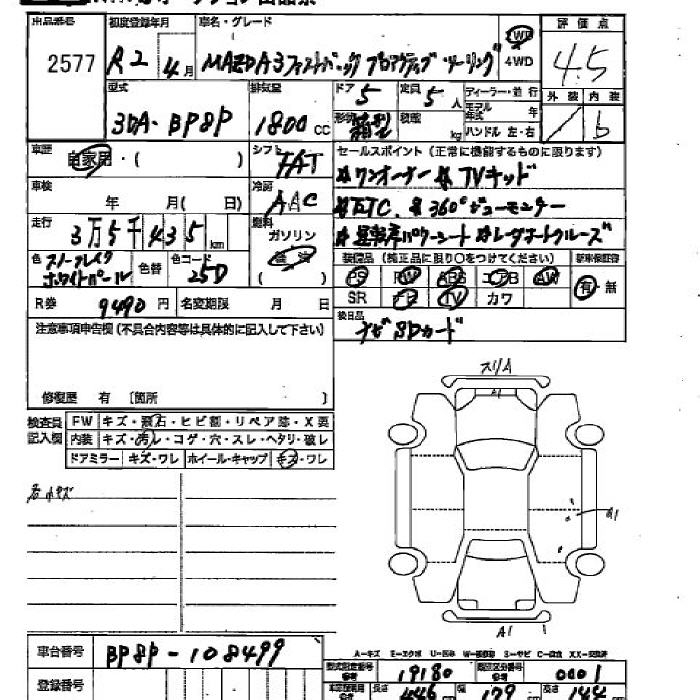 出品番号 初度登録年月 車名・グレード 評価点
2577 R2年 4月 MAZDA3ファストバック プロアクティブ ツーリング 2WD 4WD 4.5
型式 排気量 ドア 5 定員 5人 ディーラー・並行 外装 内装
3DA-BP8P 1800cc 形状 積載 kg モデル年式 年 ハンドル 左・右 b
車歴 自家用・( ) シフト FAT セールスポイント（正常に機能するものに限ります）
車検 年 月( 日) 冷房 AAC ＊ワンオーナー ＊TVキッド
＊ETC. ＊360°ビューモニター
走行 3万5千435km 燃料 ガソリン (軽油) ＊運転席パワーシート ＊レーダークルーズ
色 スノーフレイクホワイトパール 色替 色コード 25D 装備品（純正品に限り○をつけてください） 新車保証書
PS PW ABS エアB AW 有・無
R券 9490円 名変期限 月 日 SR TV カワ
注意事項申告欄（不具合内容等は具体的に記入して下さい） 後日品 ナビSDカード
修復歴 有 [箇所 ]
スリA
A1
検査員記入欄 FW キズ・飛石・ヒビ割・リペア跡・X要
内装 キズ・汚レ・コゲ・穴・スレ・ヘタリ・破レ
ドアミラー キズ・ワレ ホイール・キャップ キズ・ワレ
各小キズ
A1
A1
車台番号 BP8P-108499
A-キズ E-エクボ U-凹み W-補修跡 S-サビ C-腐食 XX-交換済
型式指定番号 19180 類別区分番号 0001
登録番号 長さ 446 幅 179 高さ 144